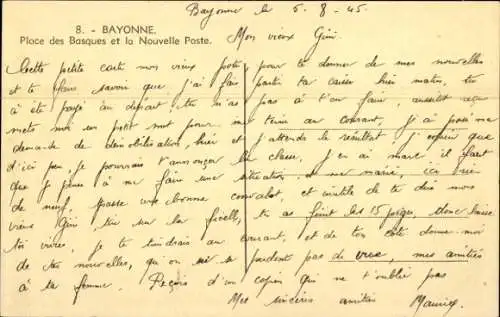 8. - BAYONNE.
Place des Basques et la Nouvelle Poste.
Bayonne le 5-8-45
Mon vieux Gini
Cette petite carte mon vieux pote pour te donner de mes nouvelles
et te faire savoir que j'ai fait partir ta caisse hier matin, tu
à été payé au départ, tu n'as pas à t'en faire, aussitôt reçue
mets moi un petit mot pour me tenir au courant, j'ai posé ma
demande de démobilisation, hier et j'attends le résultat j'espère que
d'ici peu, je pourrais t'annoncer la classe, j'en ai marre il faut
que je pense à me faire une situation, me marier, ici rien
de neuf, passe une bonne et inutile de te dire mon
vieux Gini, tire sur la ficelle, tu as fait les 15 piges, donc laisse
toi vivre, je te tiendrais au courant, et de ton côté donne-moi
de tes nouvelles, qu'on ne se perdent pas de vue, mes amitiés
à ta femme. Reçois d'un copain Gini qui ne t'oublie pas
Mes sincères amitiés Maurice.